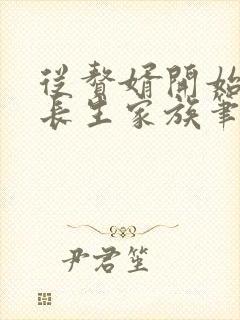 從贅婿開始
長生家族筆
尹君笙